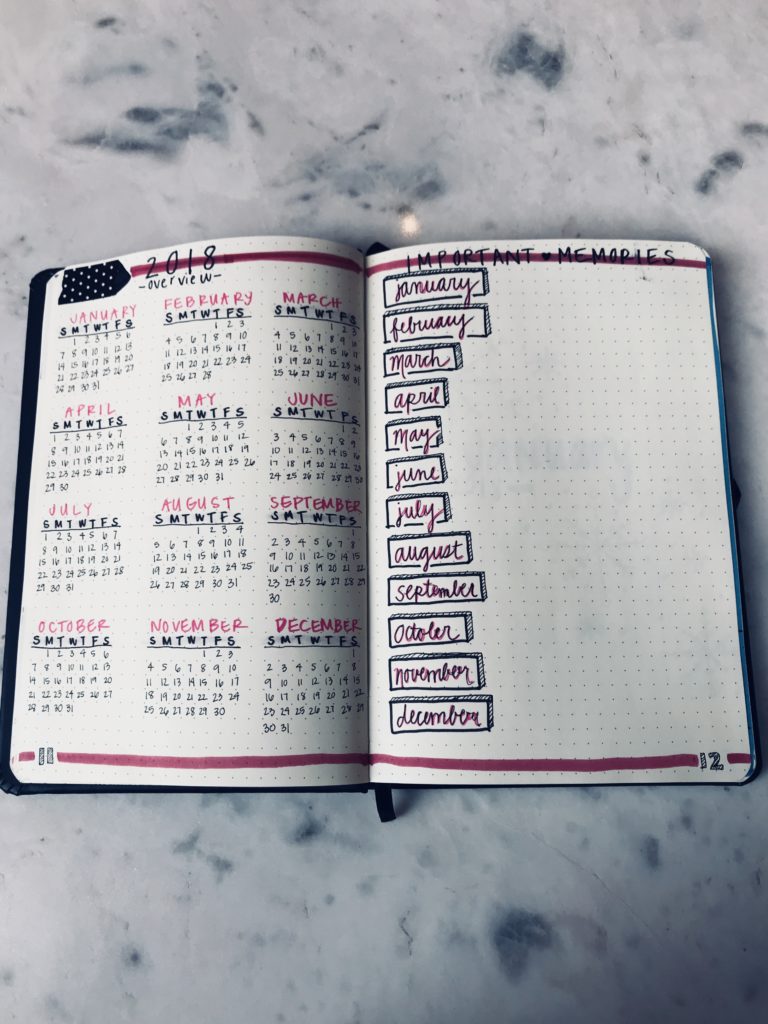 2018
-overview-
JANUARY
S M T W T F S
1 2 3 4 5 6
7 8 9 10 11 12 13
14 15 16 17 18 19 20
21 22 23 24 25 26 27
28 29 30 31
FEBRUARY
S M T W T F S
1 2 3
4 5 6 7 8 9 10
11 12 13 14 15 16 17
18 19 20 21 22 23 24
25 26 27 28
MARCH
S M T W T F S
1 2 3
4 5 6 7 8 9 10
11 12 13 14 15 16 17
18 19 20 21 22 23 24
25 26 27 28 29 30 31
APRIL
S M T W T F S
1 2 3 4 5 6 7
8 9 10 11 12 13 14
15 16 17 18 19 20 21
22 23 24 25 26 27 28
29 30
MAY
S M T W T F S
1 2 3 4 5
6 7 8 9 10 11 12
13 14 15 16 17 18 19
20 21 22 23 24 25 26
27 28 29 30 31
JUNE
S M T W T F S
1 2
3 4 5 6 7 8 9
10 11 12 13 14 15 16
17 18 19 20 21 22 23
24 25 26 27 28 29 30
JULY
S M T W T F S
1 2 3 4 5 6 7
8 9 10 11 12 13 14
15 16 17 18 19 20 21
22 23 24 25 26 27 28
29 30 31
AUGUST
S M T W T F S
1 2 3 4
5 6 7 8 9 10 11
12 13 14 15 16 17 18
19 20 21 22 23 24 25
26 27 28 29 30 31
SEPTEMBER
S M T W T F S
1
2 3 4 5 6 7 8
9 10 11 12 13 14 15
16 17 18 19 20 21 22
23 24 25 26 27 28 29
30
OCTOBER
S M T W T F S
1 2 3 4 5 6
7 8 9 10 11 12 13
14 15 16 17 18 19 20
21 22 23 24 25 26 27
28 29 30 31
NOVEMBER
S M T W T F S
1 2 3
4 5 6 7 8 9 10
11 12 13 14 15 16 17
18 19 20 21 22 23 24
25 26 27 28 29 30
DECEMBER
S M T W T F S
1
2 3 4 5 6 7 8
9 10 11 12 13 14 15
16 17 18 19 20 21 22
23 24 25 26 27 28 29
30 31
11
IMPORTANT ♥ MEMORIES
january
february
march
april
may
june
july
august
september
October
november
december
12